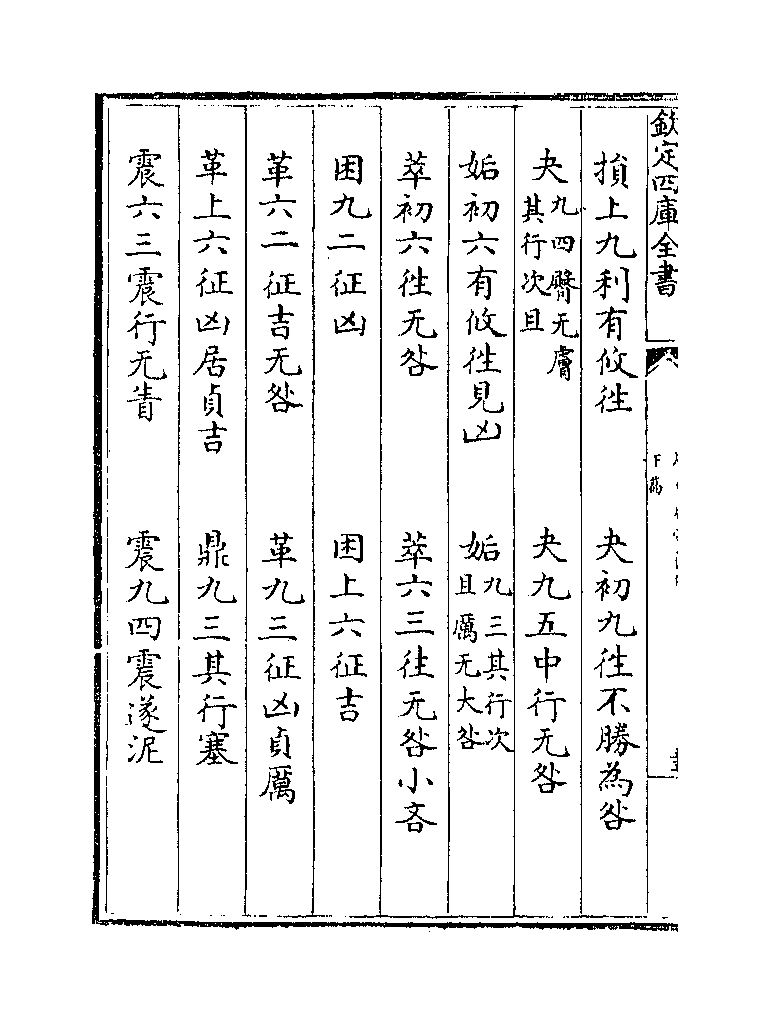 欽定四庫全書
下篇
損上九利有攸徃　夬初九徃不勝為咎
夬九四臀无膚其行次且　夬九五中行无咎
姤初六有攸徃見凶　姤九三其行次且厲无大咎
萃初六徃无咎　萃六三徃无咎小吝
困九二征凶　困上六征吉
革六二征吉无咎　革九三征凶貞厲
革上六征凶居貞吉　鼎九三其行塞
震六三震行无眚　震九四震遂泥